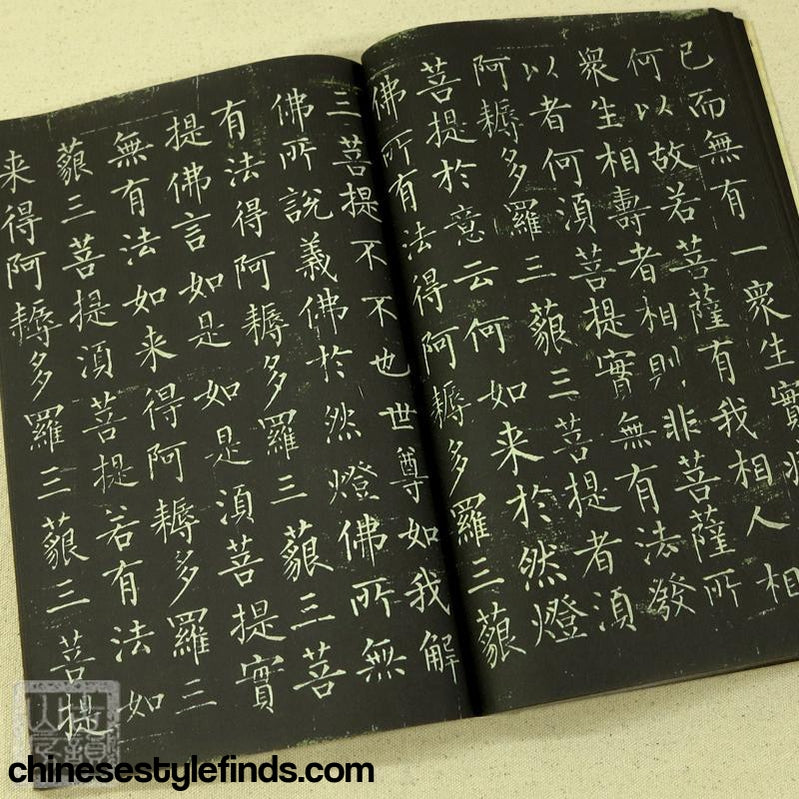 已而無有一衆生實
何以故若菩薩有我相人相
衆生相壽者相則非菩薩所
以者何湏菩提實無有法發
阿耨多羅三藐三菩提者湏
菩提於意云何如来於然燈
佛所有法得阿耨多羅三藐
三菩提不不也世尊如我解
佛所說義佛於然燈佛所無
有法得阿耨多羅三藐三菩
提佛言如是如是湏菩提實
無有法如来得阿耨多羅三
藐三菩提湏菩提若有法如
来得阿耨多羅三藐三菩提
chinesestylefinds.com